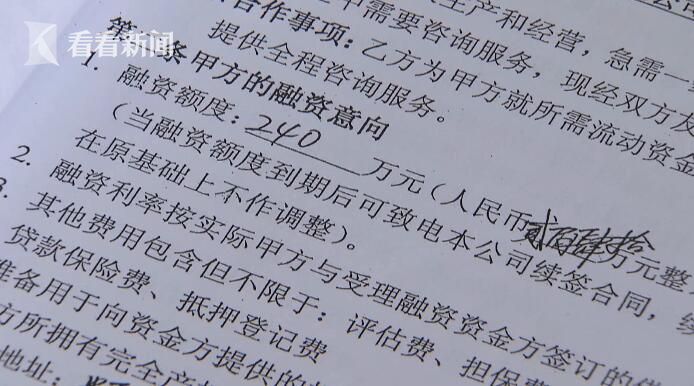 看看新闻
生产和经营，急需一
合作事项：乙方为甲方就所需流动资金
中需要咨询服务，现经双方友
提供全程咨询服务。
条 甲方的融资意向
1. 融资额度：240万元（人民币贰佰肆拾万元整
（当融资额度到期后可致电本公司续签合同，
在原基础上不作调整）。
2. 融资利率按实际甲方与受理融资资金方签订的借
3. 其他费用包含但不限于：评估费、担保费
贷款保险费、抵押登记费
准备用于向资金方提供的
方所拥有完全产
地址：